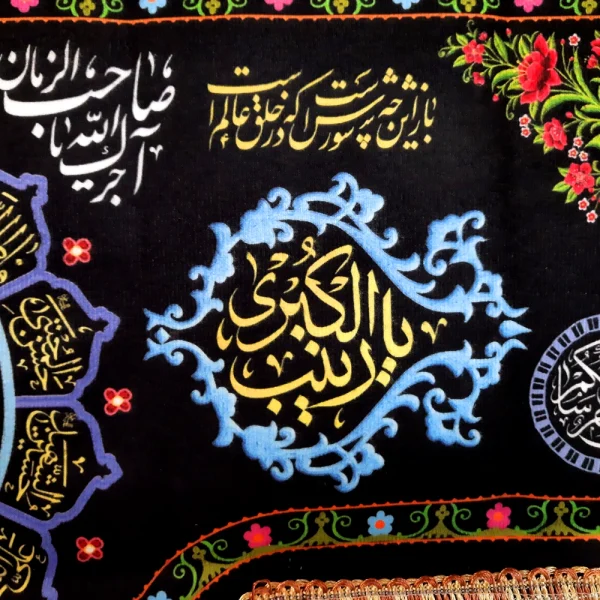 باز این چه شورش است که در خلق عالم است
آجرک الله یا صاحب الزمان
یا زینب الکبری
حسن المجتبی